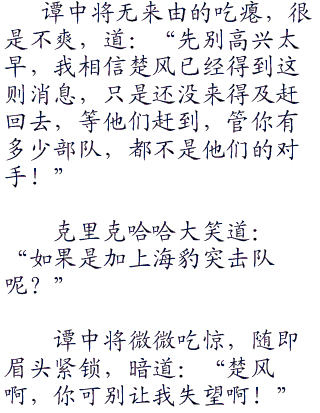 谭中将无来由的吃瘪，很
是不爽，道：“先别高兴太
早，我相信楚风已经得到这
则消息，只是还没来得及赶
回去，等他们赶到，管你有
多少部队，都不是他们的对
手！”
克里克哈哈大笑道：
“如果是加上海豹突击队
呢？”
谭中将微微吃惊，随即
眉头紧锁，暗道：“楚风
啊，你可别让我失望啊！”